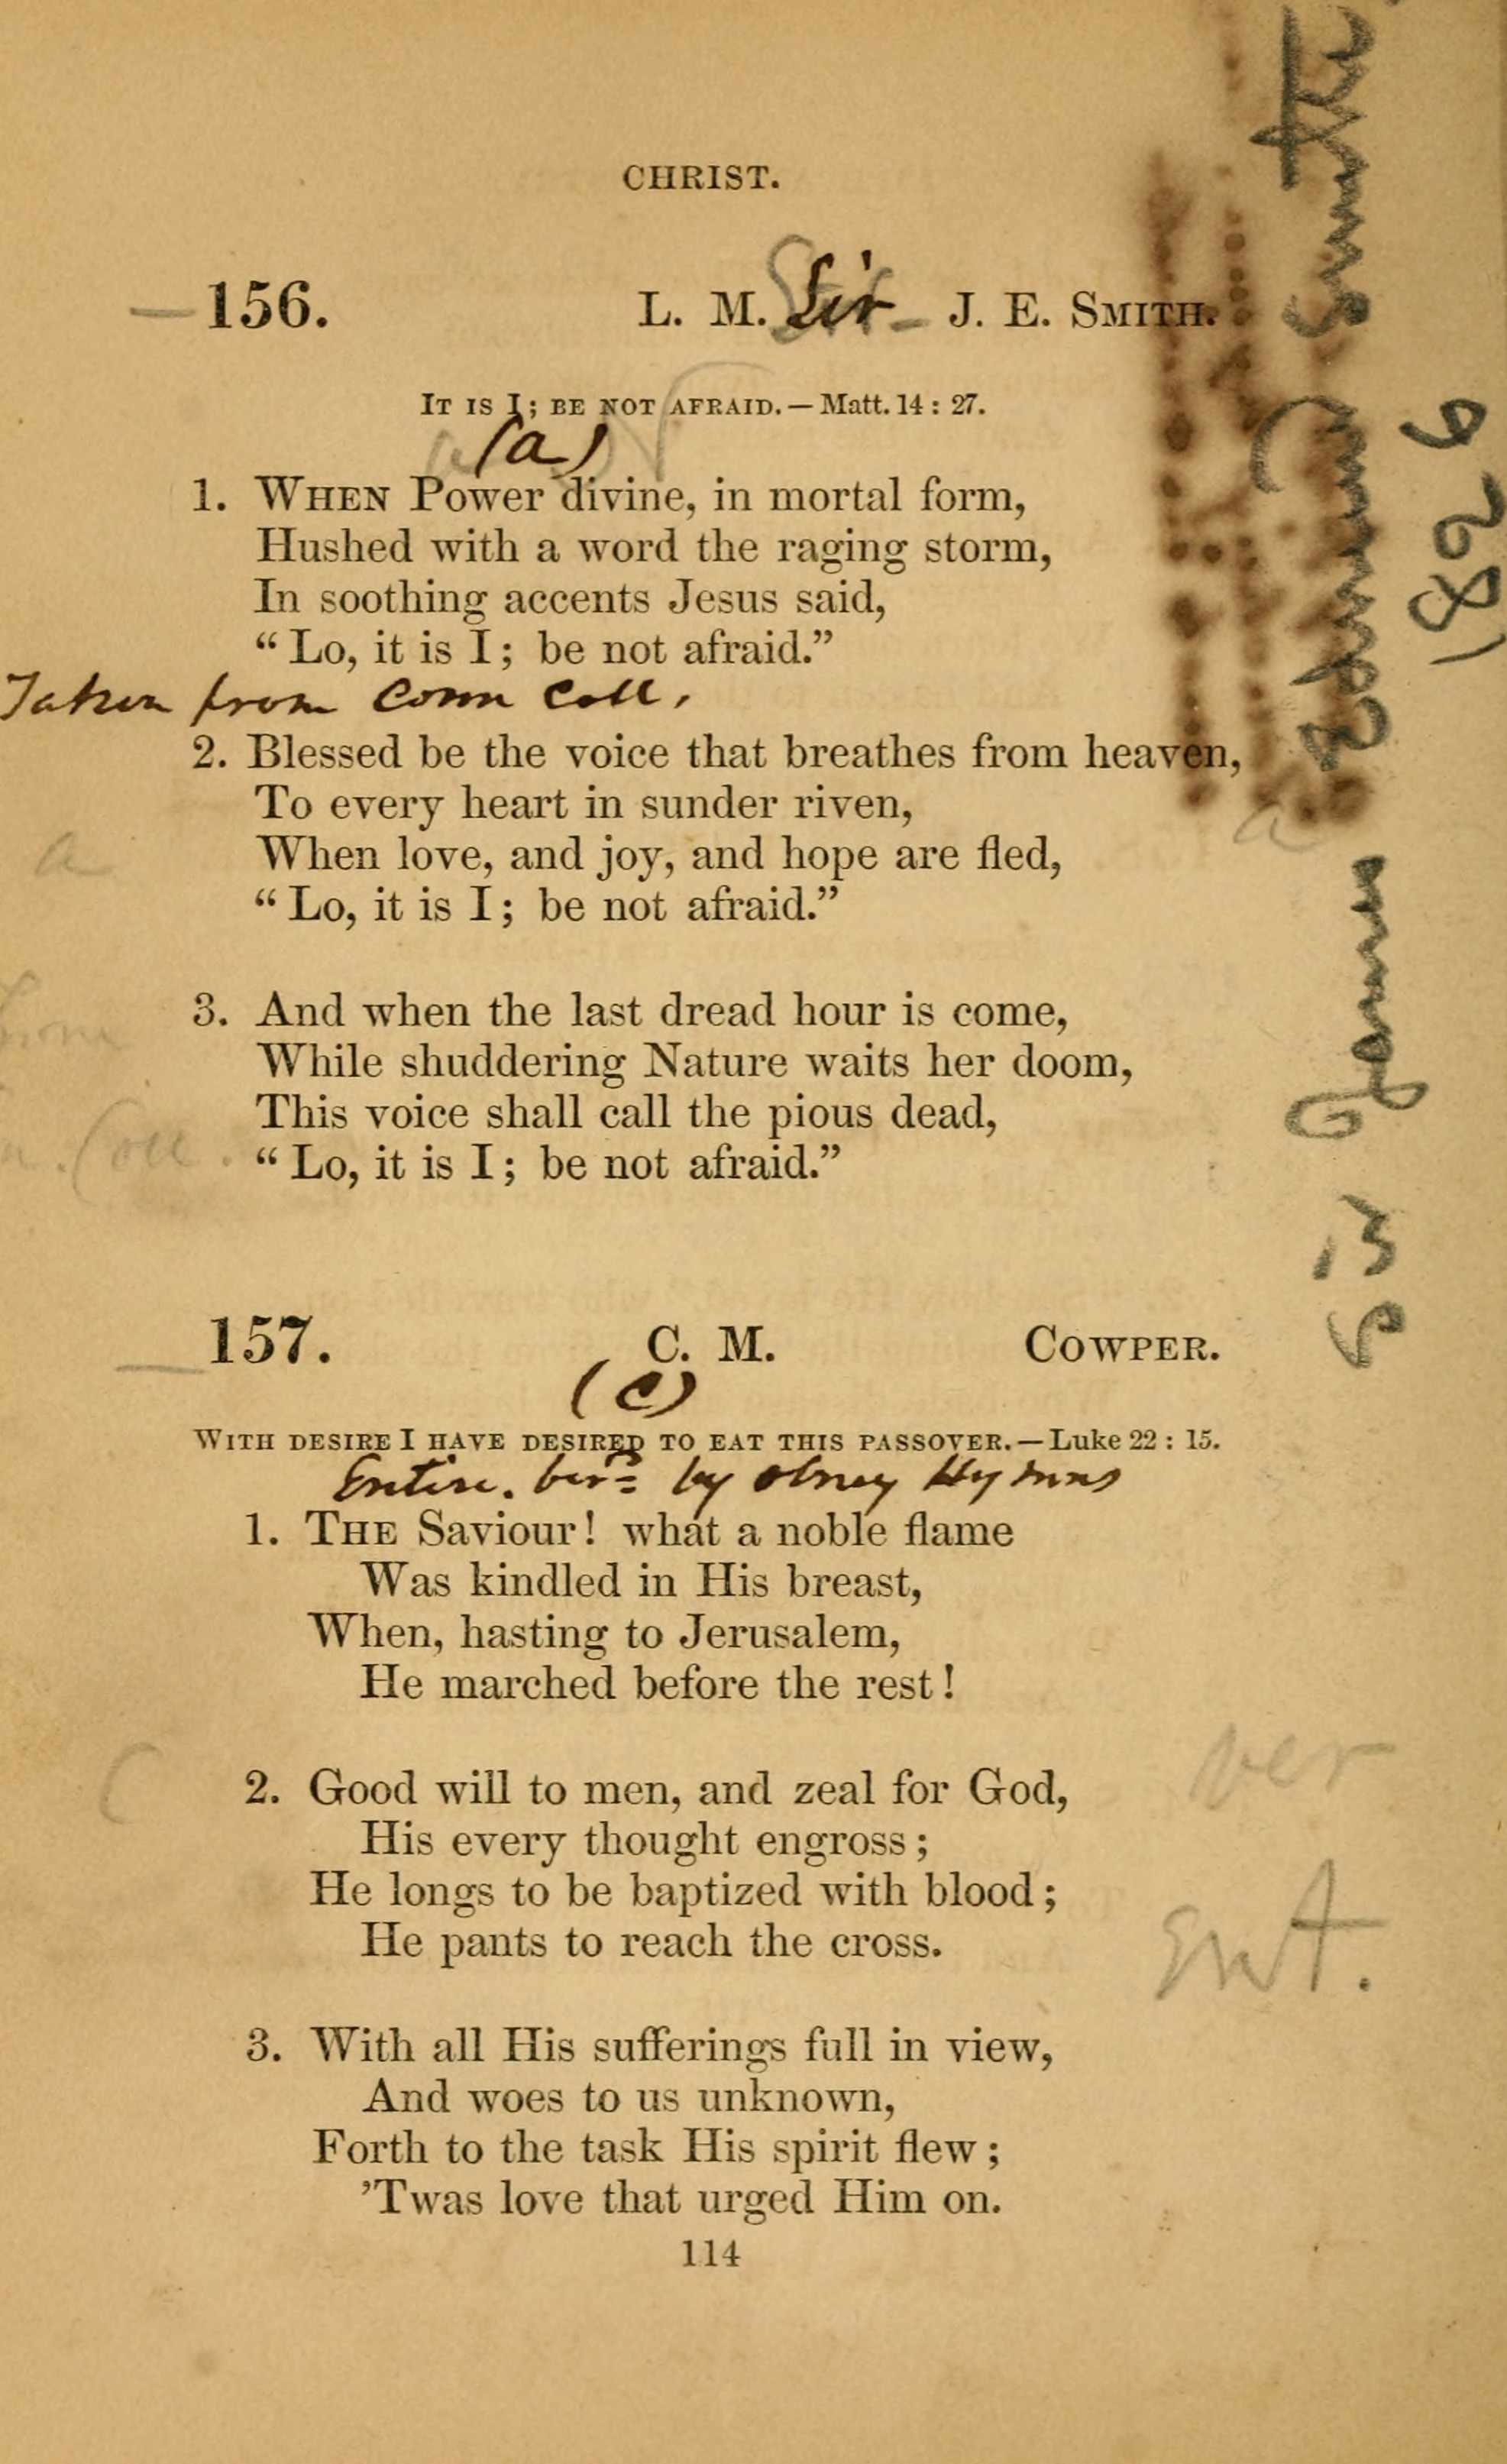 CHRIST.
156. L. M. Sir J. E. SMITH.
IT IS I; BE NOT AFRAID.—Matt. 14: 27.
(a)
1. WHEN Power divine, in mortal form,
Hushed with a word the raging storm,
In soothing accents Jesus said,
“Lo, it is I; be not afraid.”
Taken from Conn Coll.
2. Blessed be the voice that breathes from heaven,
To every heart in sunder riven,
When love, and joy, and hope are fled,
“Lo, it is I; be not afraid.”
a
a
3. And when the last dread hour is come,
While shuddering Nature waits her doom,
This voice shall call the pious dead,
“Lo, it is I; be not afraid.”
from
Coll.
Sir James Edward Smith
1826
157. C. M. COWPER.
(c)
WITH DESIRE I HAVE DESIRED TO EAT THIS PASSOVER.—Luke 22: 15.
Entire. by Olney Hymns
1. THE Saviour! what a noble flame
Was kindled in His breast,
When, hasting to Jerusalem,
He marched before the rest!
2. Good will to men, and zeal for God,
His every thought engross;
He longs to be baptized with blood;
He pants to reach the cross.
ver
Ent.
3. With all His sufferings full in view,
And woes to us unknown,
Forth to the task His spirit flew;
’Twas love that urged Him on.
114